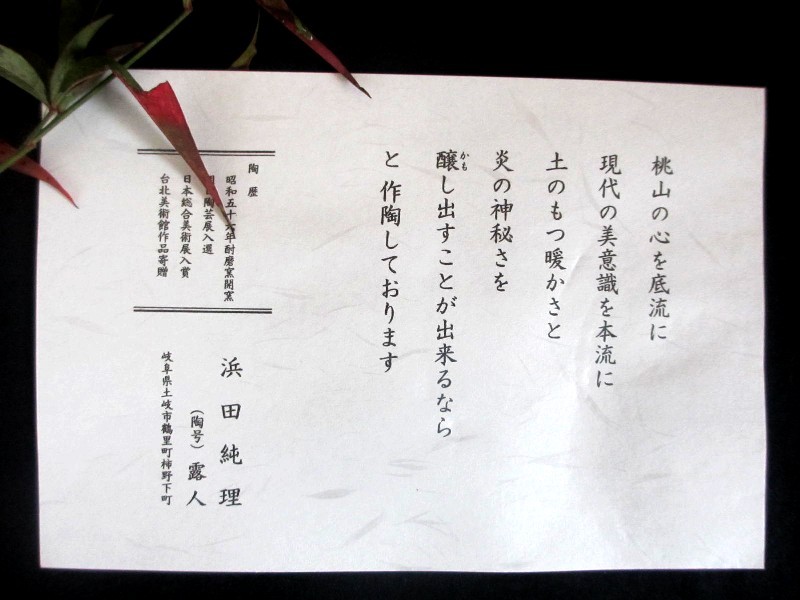 桃山の心を底流に
現代の美意識を本流に
土のもつ暖かさと
炎の神秘さを
醸し出すことが出来るなら
かも
と 作陶しております
陶歴
昭和五十六年耐磨窯開窯
陶芸展入選
日本総合美術展入賞
台北美術館作品寄贈
浜田純理
(陶号) 露人
岐阜県土岐市鶴里町柿野下町